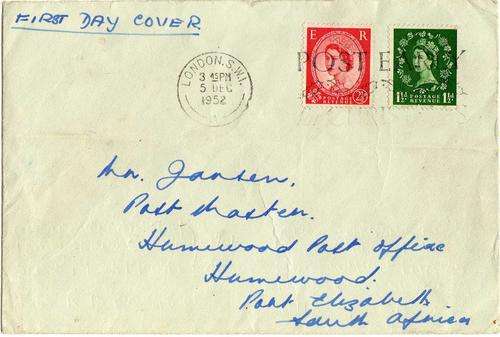 FIRST DAY COVER
LONDON. S.W.1.
3 45PM
5 DEC
1952
POST E
E R
POSTAGE
REVENUE
2½
POSTAGE
REVENUE
1½D 1½D
Mr. Jansen,
Post Master.
Humewood Post Office
Humewood.
Port Elizabeth
South Africa